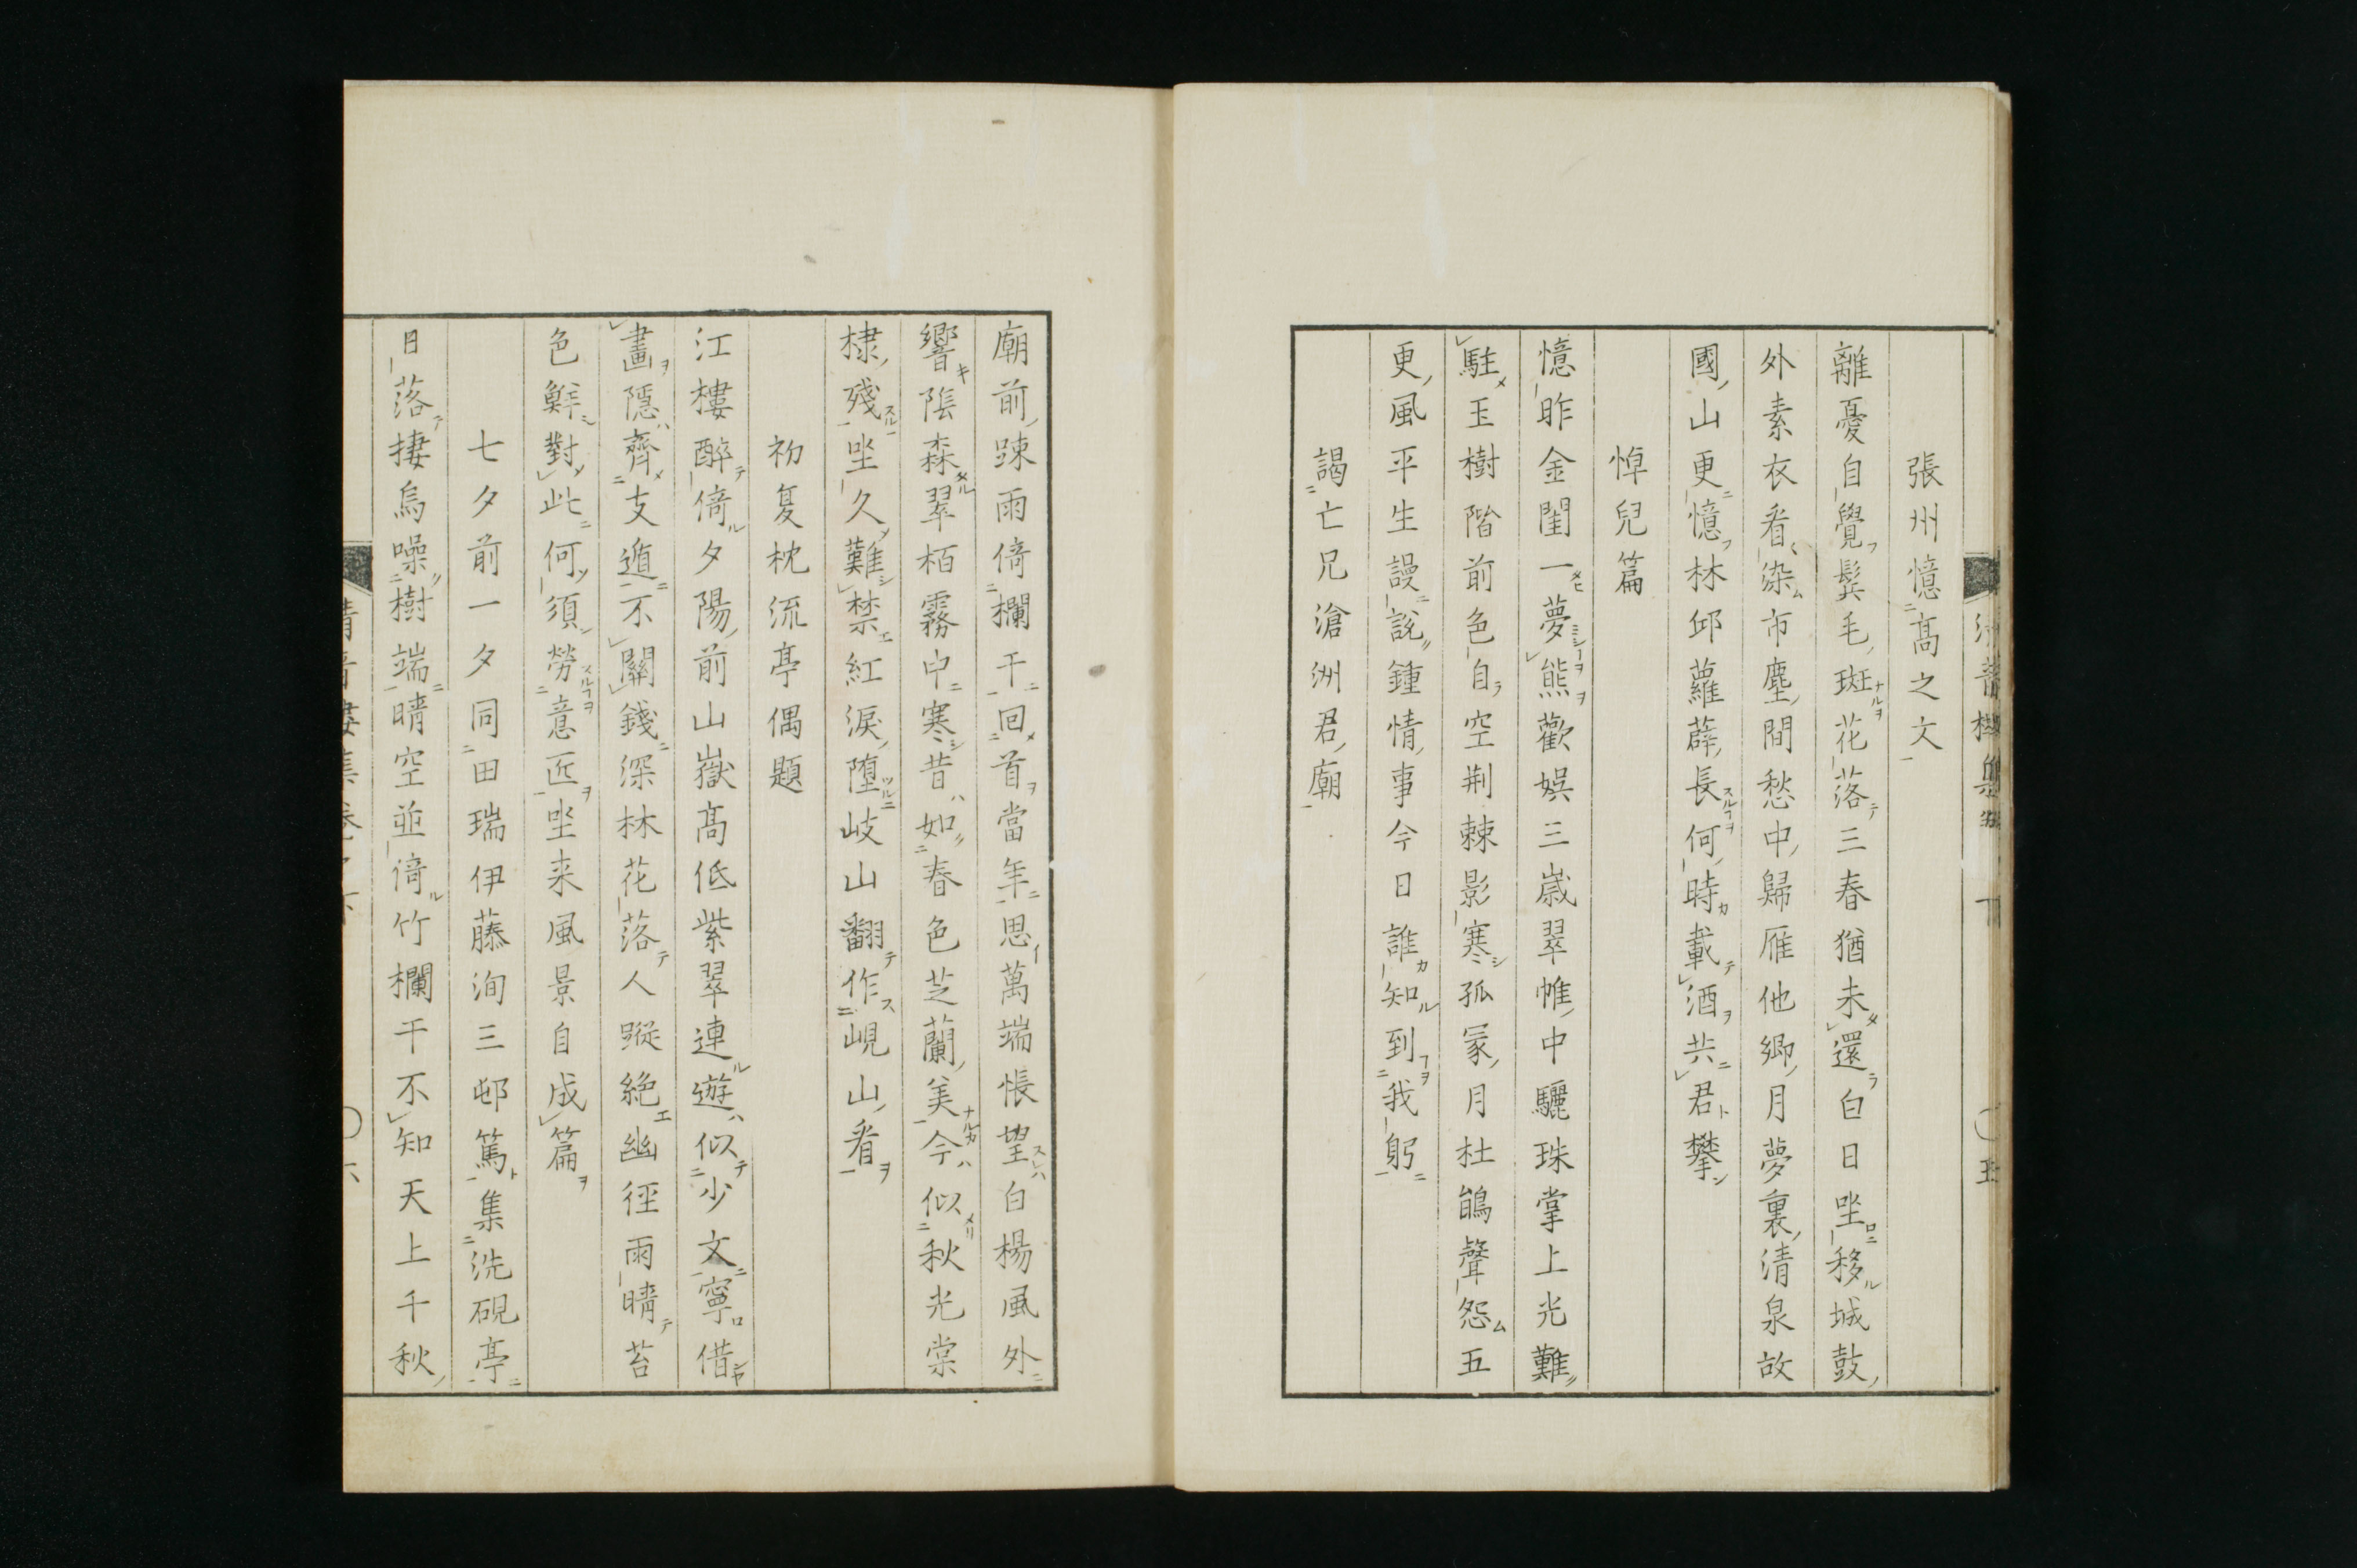 張州憶高之文
離憂自覺鬂毛斑花落三春猶未還白日坐移城鼓
外素衣看染市塵間愁中歸雁他鄉月夢裏清泉故
國山更憶林邱蘿薜長何時載酒共君攀
悼兒篇
憶昨金閨一夢熊歡娯三歳翠帷中驪珠掌上光難
駐玉樹階前色自空荆棘影寒孤冢月杜鵑聲怨五
更風平生謾說鍾情事今日誰知到我躬
謁亡兄滄洲君廟
廟前踈雨倚欄干回首當年思萬端悵望白楊風外
響陰森翠栢霧中寒昔如春色芝蘭美今似秋光棠
棣殘坐久難禁紅淚堕岐山翻作峴山看
初夏枕流亭偶題
江樓醉倚夕陽前山嶽高低紫翠連遊似少文寧借
畫隱齊支遁不關錢深林花落人蹤絶幽徑雨晴苔
色鮮對此何須勞意匠坐来風景自成篇
七夕前一夕同田瑞伊藤洵三邨篤集洗硯亭
日落棲烏噪樹端晴空並倚竹欄干不知天上千秋